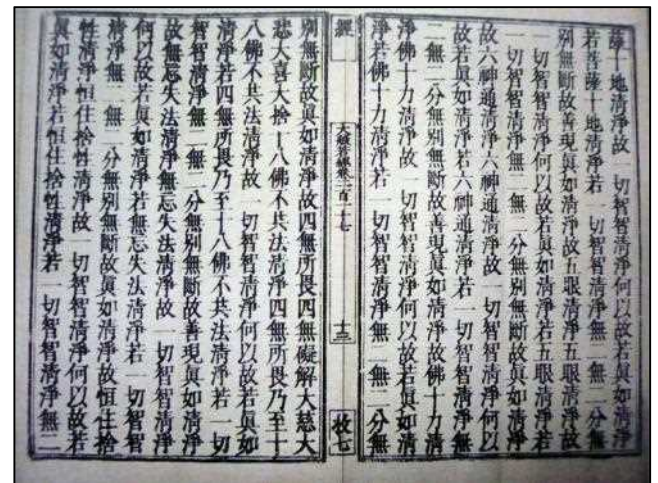 薩十地清淨故一切智智清淨何以故若眞如清淨
若菩薩十地清淨若一切智智清淨無二無二分無
別無斷故善現眞如清淨故五眼清淨五眼清淨故
一切智智清淨何以故若眞如清淨若五眼清淨若
一切智智清淨無二無二分無別無斷故眞如清淨
故六神通清淨六神通清淨故一切智智清淨何以
故若眞如清淨若六神通清淨若一切智智清淨無
二無二分無別無斷故善現眞如清淨故佛十力清
淨佛十力清淨故一切智智清淨何以故若眞如清
淨若佛十力清淨若一切智智清淨無二無二分無
經
大般若經卷二百十七
十三
枚七
別無斷故眞如清淨故四無所畏四無礙解大慈大
悲大喜大捨十八佛不共法清淨四無所畏乃至十
八佛不共法清淨故一切智智清淨何以故若眞如
清淨若四無所畏乃至十八佛不共法清淨若一切
智智清淨無二無二分無別無斷故善現眞如清淨
故無忘失法清淨無忘失法清淨故一切智智清淨
何以故若眞如清淨若無忘失法清淨若一切智智
清淨無二無二分無別無斷故眞如清淨故恒住捨
性清淨恒住捨性清淨故一切智智清淨何以故若
眞如清淨若恒住捨性清淨若一切智智清淨無二